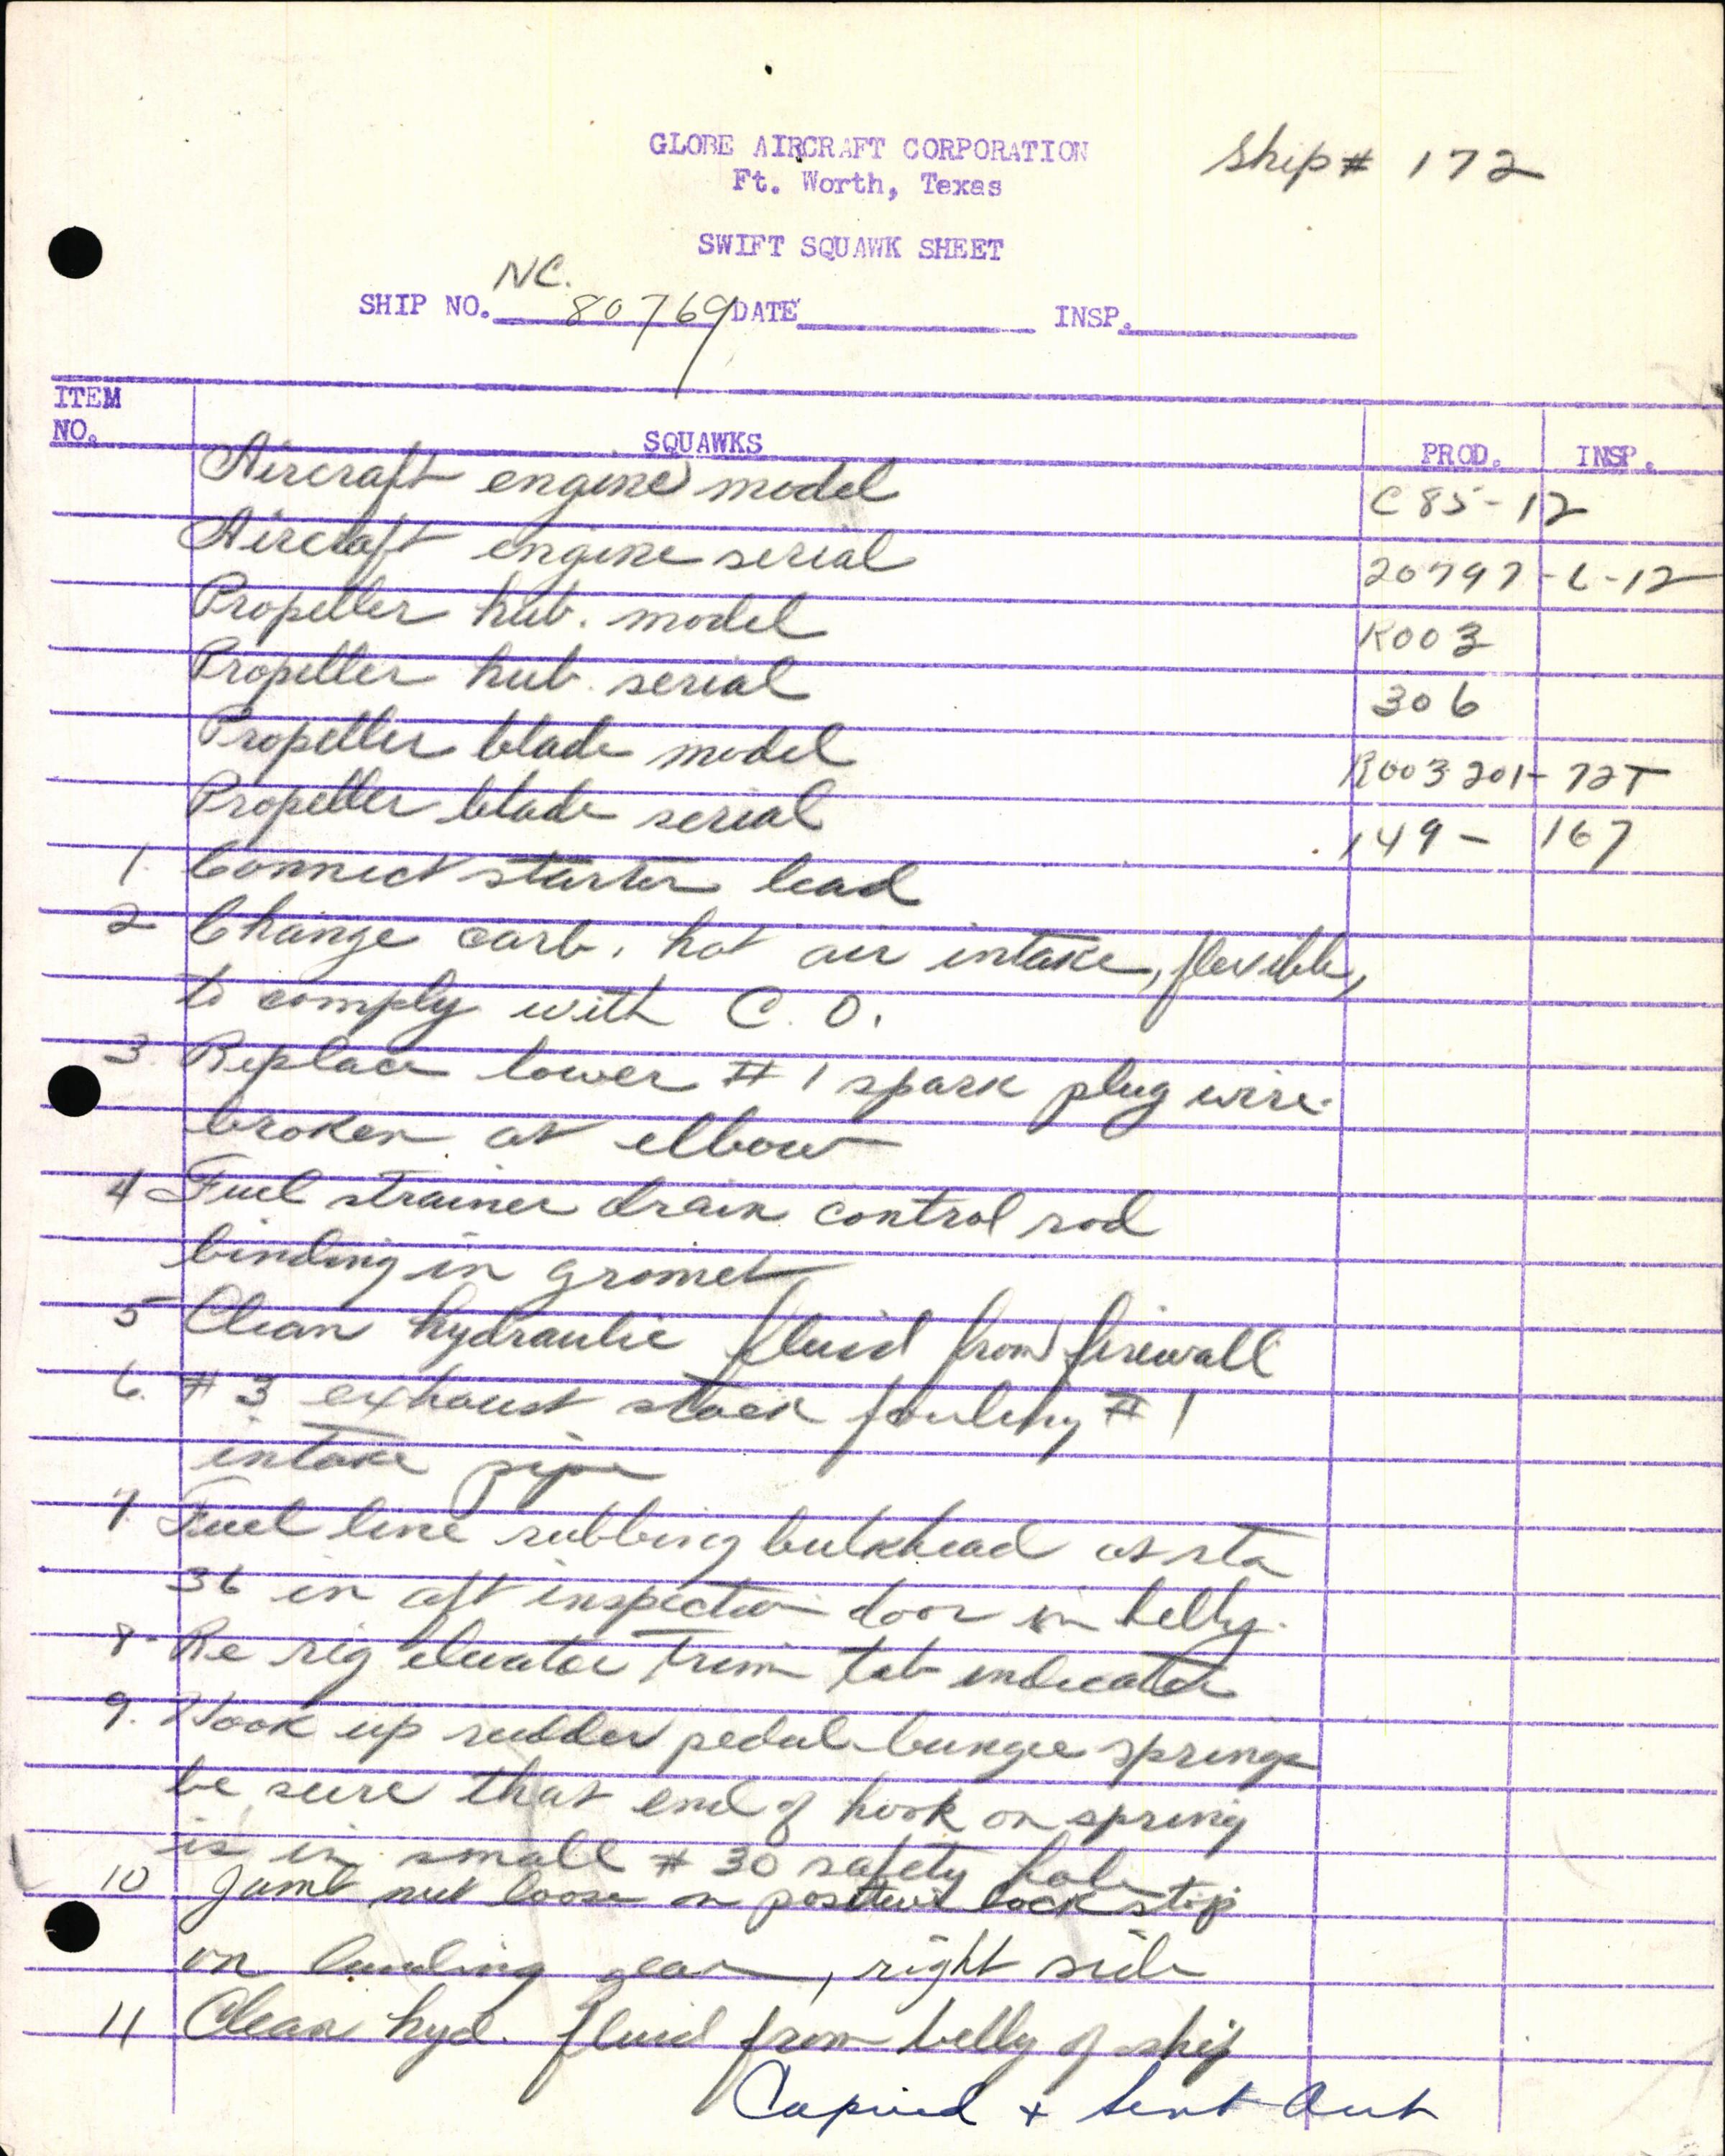 GLOBE AIRCRAFT CORPORATION
Ship # 172
Ft. Worth, Texas
SWIFT SQUAWK SHEET
NC.
SHIP NO. 80769 DATE INSP.
ITEM NO. SQUAWKS PROD. INSP.
Aircraft engine model C85-12
Aircraft engine serial 20797-L-12
Propeller hub. model R003
Propeller hub. serial 306
Propeller blade model R003201-72T
Propeller blade serial 149- 167
1. Connect starter lead
2 Change carb. hot air intake, flexible,
to comply with C.O.
3. Replace lower #1 spark plug wire-
broken at elbow
4 Fuel strainer drain control rod
binding in gromet
5 Clean hydraulic fluid from firewall
6. #3 exhaust stack fouling #1
intake pipe
7. Fuel line rubbing bulkhead at sta
36 in aft inspection door in belly.
8. Re rig elevator trim tab indicator
9. Hook up rudder pedal bungee springs
be sure that end of hook on spring
is in small #30 safety hole
10 Jamb nut loose on positive lock stop
on landing gear, right side
11 Clean hyd. fluid from belly of ship
Copied + Sent Out